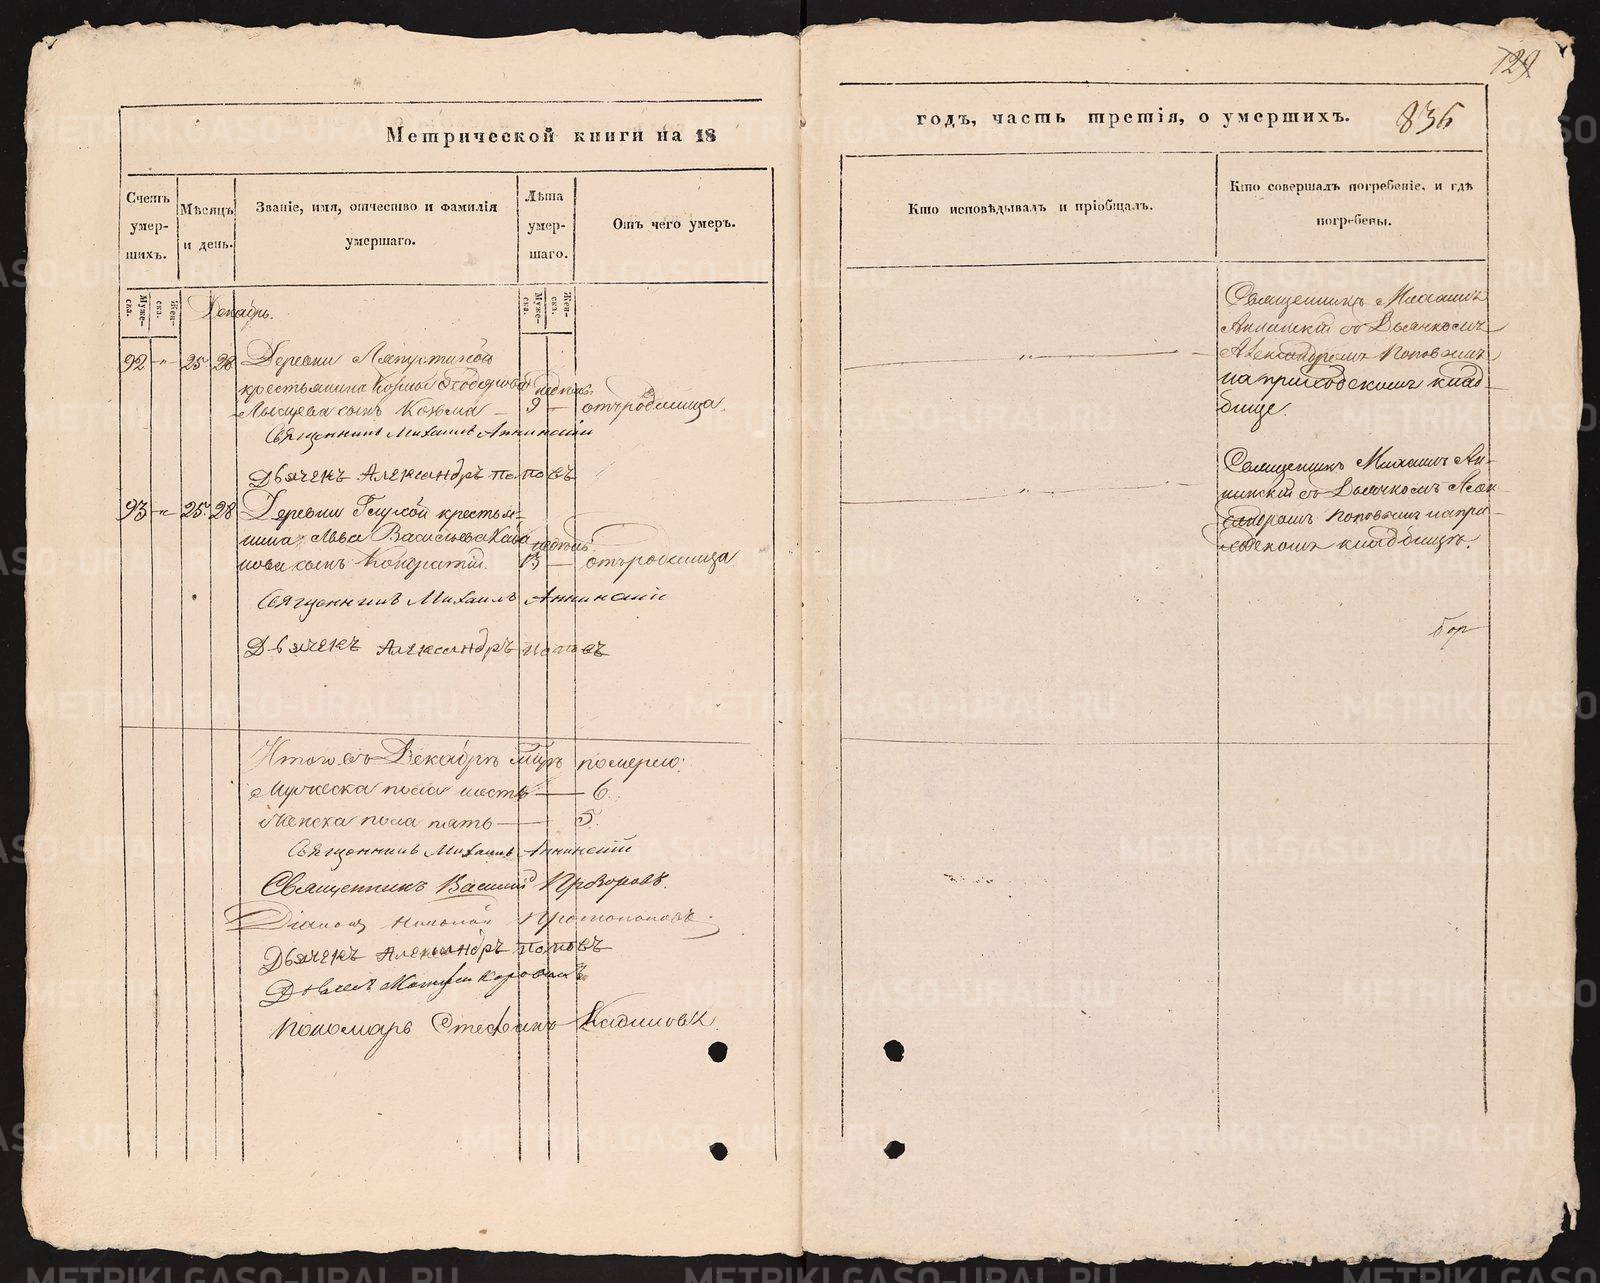 129
Метрической книги на 18
годъ, часть третія, о умершихъ.
836
Счетъ умер-шихъ.
Мѣсяцъ и день.
Званіе, имя, отчество и фамилія умершаго.
Лѣта умер-шаго.
Отъ чего умер.
Кто исповѣдывалъ и пріобщалъ.
Кто совершалъ погребеніе, и гдѣ погребены.
Муже-ска.
Жен-ска.
Муже-ска.
Жен-ска.
Декабрь.
92 - 25 28 Деревни
крестьянина Козмы
сынъ Козма 9 отъ родимца.
Священникъ Михаилъ Аннинскій
Дьячекъ Александръ Поповъ
Священникъ Михаилъ
Аннинскій съ Дьячкомъ
Александромъ Поповымъ
на приходскомъ клад-
бище.
93 - 25 28 Деревни Глухой крестья-
нина Льва Васильева
сынъ Кондратій. 13 отъ родимца
Священникъ Михаилъ Аннинскій
Дьячекъ Александръ Поповъ
Священникъ Михаилъ Ан-
нинскій съ Дьячкомъ Алек-
сандромъ Поповымъ на при-
ходскомъ кладбищѣ.
Итого въ Декабрѣ м-цѣ померло:
Мужеска пола шесть — 6.
Женска пола пять — 5.
Священникъ Михаилъ Аннинскій
Священникъ Василій Прозоровъ.
Діаконъ Николай Протопоповъ.
Дьячекъ Александръ Поповъ
Дьячекъ
Пономарь Стефанъ
METRIKI.GASO-URAL.RU